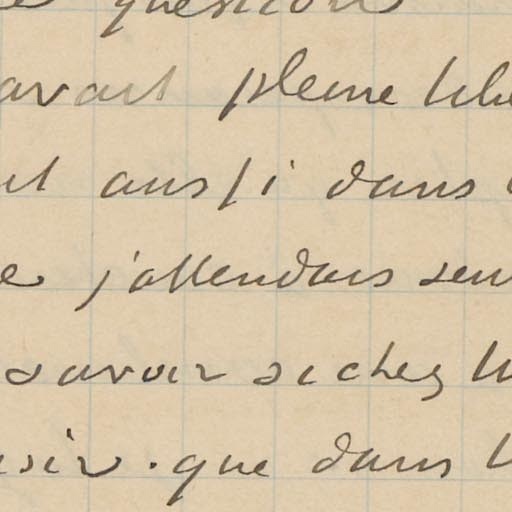 question
avait pleine
aussi dans
j'attendais
savoir si chez
que dans